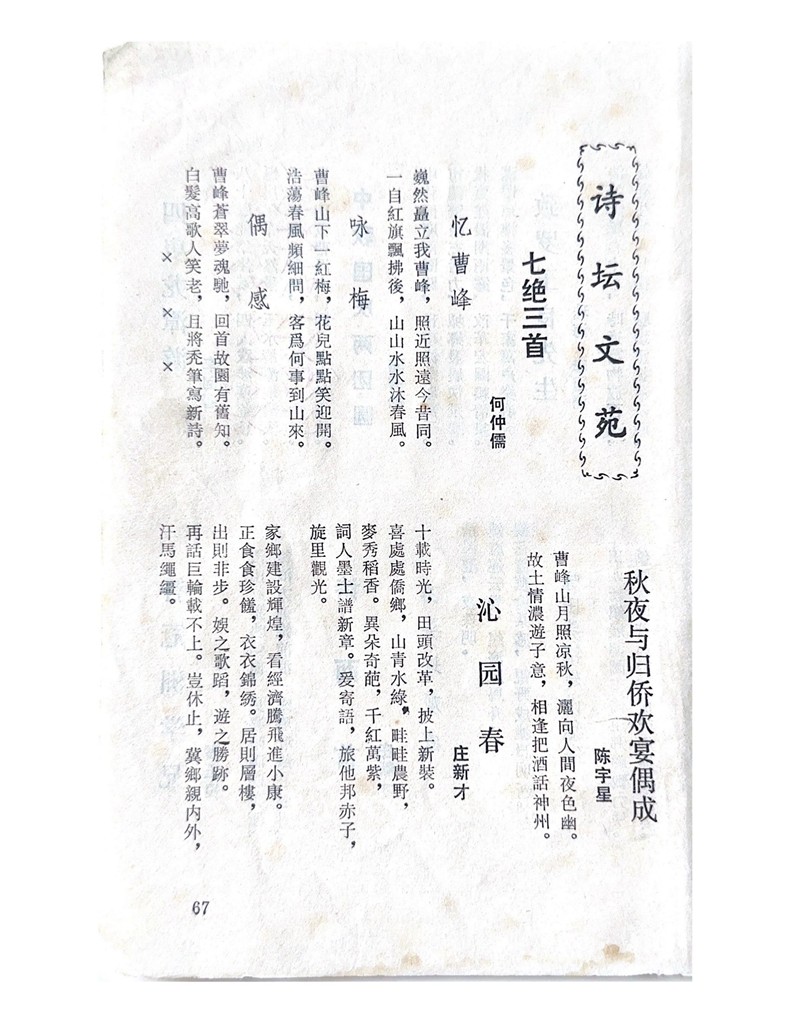 诗坛文苑
七绝三首
何仲儒
忆曹峰
巍然矗立我曹峰，照近照遠今昔同。
一自紅旗飄拂後，山山水水沐春風。
咏梅
曹峰山下一紅梅，花兒點點笑迎開。
浩蕩春風頻細問，客爲何事到山來。
偶感
曹峰蒼翠夢魂馳，回首故園有舊知。
白髮高歌人笑老，且將禿筆寫新詩。
× × ×
秋夜与归侨欢宴偶成
陈宇星
曹峰山月照凉秋，灑向人間夜色幽。
故土情濃遊子意，相逢把酒話神州。
沁园春
庄新才
十載時光，田頭改革，披上新裝。
喜處處僑鄉，山青水綠，畦畦農野，
麥秀稻香。異朵奇葩，千紅萬紫，
詞人墨士譜新章。爰寄語，旅他邦赤子，
旋里觀光。
家鄉建設輝煌，看經濟騰飛進小康。
正食食珍饈，衣衣錦绣。居則層樓，
出則非步。娛之歌蹈，遊之勝跡。
再話巨輪載不上。豈休止，冀鄉親内外，
汗馬繩繮。
67